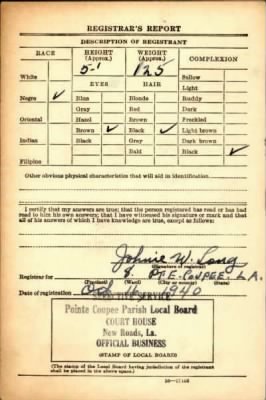 REGISTRAR'S REPORT
DESCRIPTION OF REGISTRANT
RACE HEIGHT (Approx.) WEIGHT (Approx.) COMPLEXION
5-1 125
White Sallow
EYES HAIR Light
Negro ✓ Blue Blonde Ruddy
Gray Red Dark
Oriental Hazel Brown Freckled
Brown ✓ Black ✓ Light brown
Indian Black Gray Dark brown
Bald Black ✓
Filipino
Other obvious physical characteristics that will aid in identification
I certify that my answers are true; that the person registered has read or has
had read to him his own answers; that I have witnessed his signature or mark and that
all of his answers of which I have knowledge are true, except as follows:
Johnie W. Long
(Signature of registrar)
Registrar for 8. PTE-COUPEE. LA.
(Precinct) (Ward) (City or county) (State)
Date of registration Oct 1940
Pointe Coupee Parish Local Board
COURT HOUSE
New Roads, La.
OFFICIAL BUSINESS
(STAMP OF LOCAL BOARD)
(The stamp of the Local Board having jurisdiction of the registrant
shall be placed in the above space.)